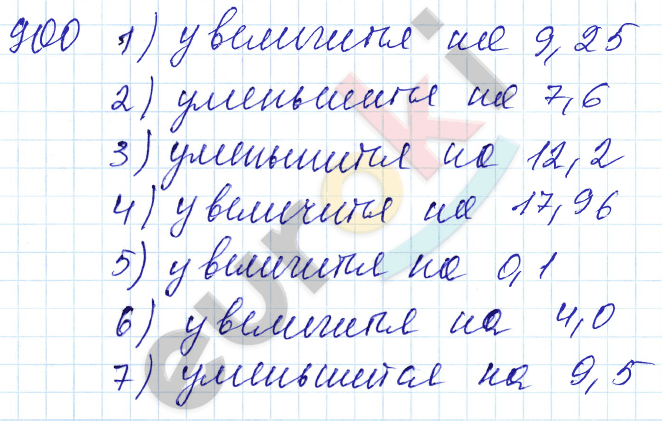 900 1) увеличится на 9,25
2) уменьшится на 7,6
3) уменьшится на 12,2
4) увеличится на 17,96
5) увеличится на 0,1
6) увеличится на 4,0
7) уменьшится на 9,5
euroki